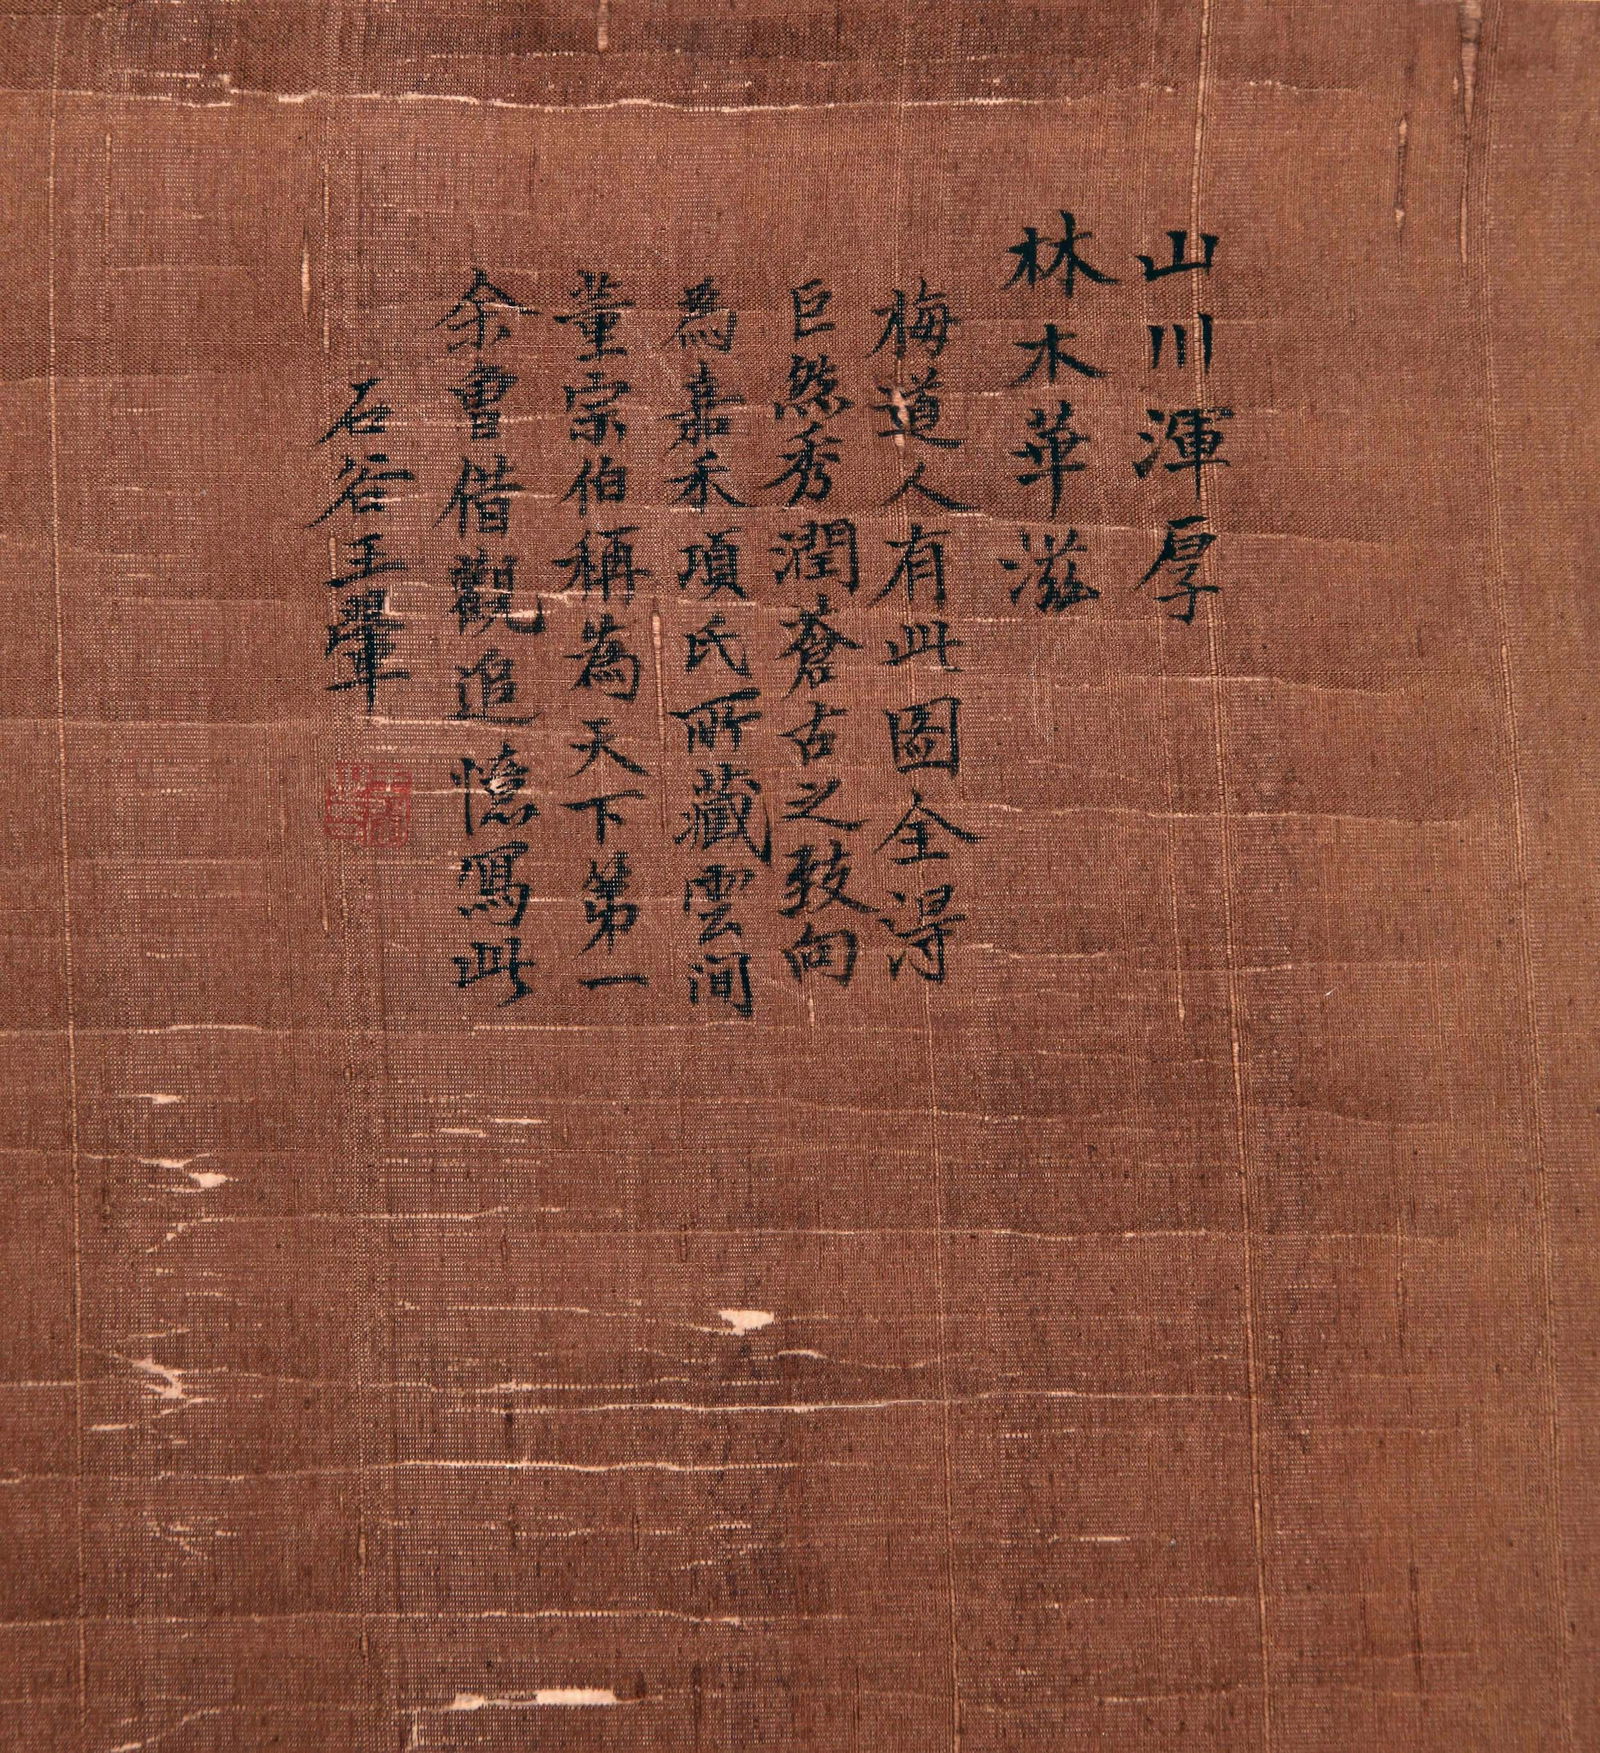 山川渾厚
林木華滋
梅道人有此圖全得
巨然秀潤蒼古之致向
為嘉禾項氏所藏雲間
董宗伯稱為天下第一
余曾借觀追憶寫此
石谷王翬